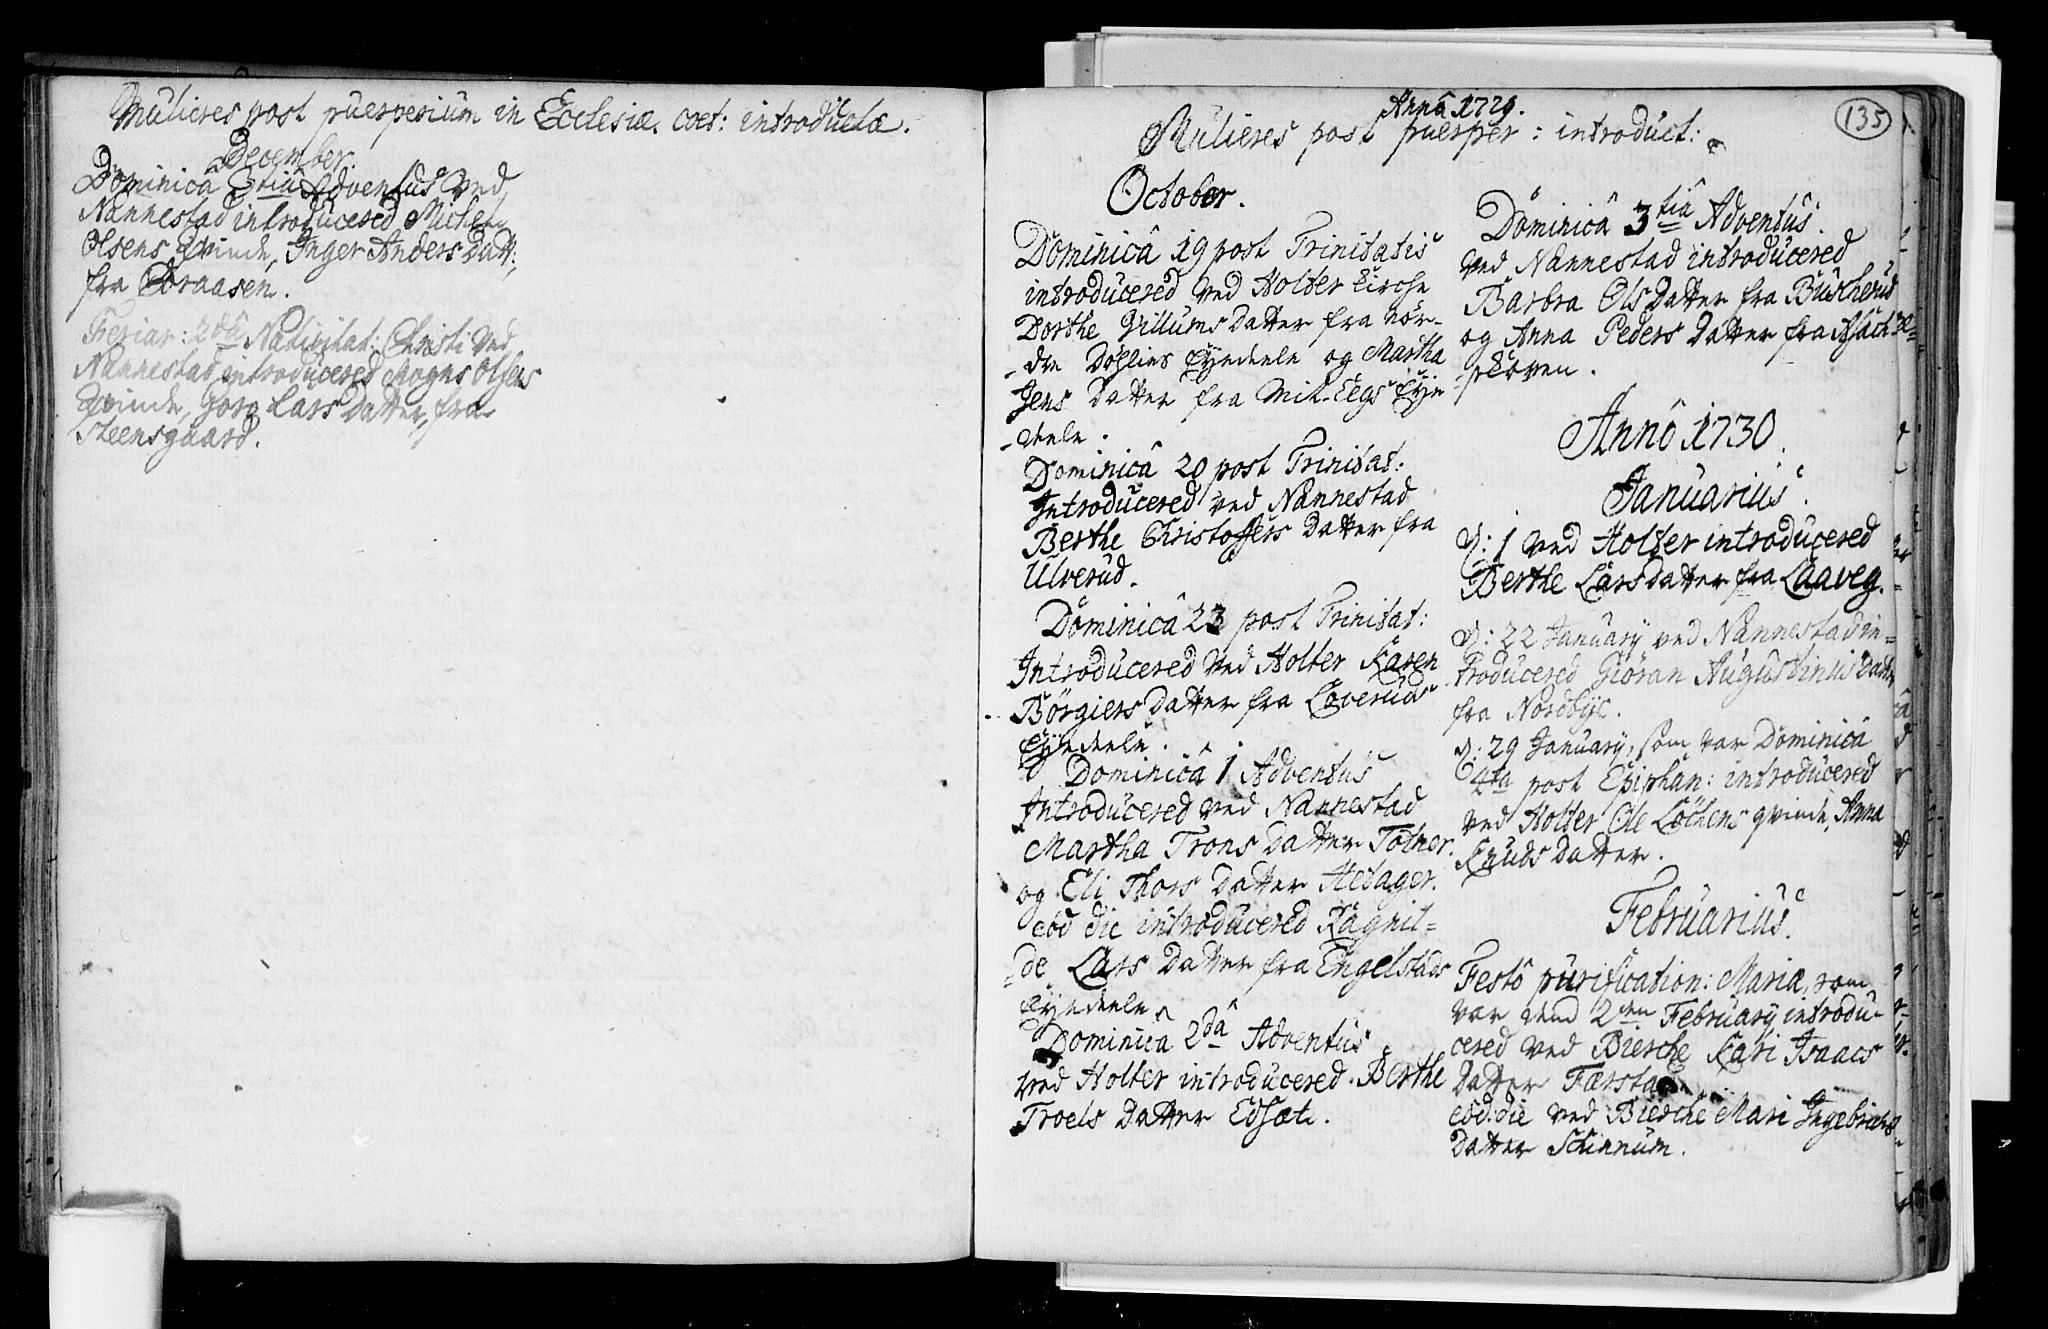 Mulieres post puerperium in Ecclesiæ coet: introductæ.
December.
Dominicâ 3tiâ Adventus ved
Nannestad introducered Michel
Olsens Qvinde, Inger Anders Datt:
fra Braasen.
Feriar: 2dâ Nativitat: Christi ved
Nannestad introducered Mogns Olsens
Qvinde, Lars Datter, fra
Steensgaard.
135
Annô 1729.
Mulieres post puerper: introduct:
October.
Dominicâ 19 post Trinitatis
introducered ved Holter Kirche
Dorthe Villums Datter fra nör-
-dre Döhlins Eÿedeele og Martha
Jens Datter fra Mit-Eegs Eÿe
-deele.
Dominicâ 20 post Trinitat:
Introducered ved Nannestad
Berthe Christoffers Datter fra
Ulverud.
Dominicâ 23 post Trinitat:
Introducered ved Holter Karen
Börgiers Datter fra Löveruds
Eÿedeele.
Dominicâ 1 Adventus
Introducered ved Nannestad
Martha Trons Datter Tother.
og Eli Thors Datter Hebager.
eod die introducered Ragnil=
=de Lars Datter fra Engelstads
Eÿedeele.
Dominica 2dâ Adventus
ved Holter introducered Berthe
Troels Datter Edsæt.
Dominicâ 3tiâ Adventus.
ved Nannestad introducered
Barbra Ols Datter fra Buscherud
og Anna Peders Datter fra
-skoven.
Annô 1730.
Januarius.
D: 1 ved Holter introducered
Berthe Lars datter fra Laaveg.
D: 22 Januarÿ ved Nannestad in=
troducered Giöran Augustinus datter
fra Nordbÿe.
D: 29 Januarÿ, som var Dominicâ
4ta post Epiphan: introducered
ved Holter Ole Löchens qvinde, Anna
Knuds Datter.
Februarius.
Festô purification: Mariæ, som
var dend 2den Februarÿ introdu-
cered ved Bierche Kari Isaacs
Datter Færstad.
eod: die ved Bierche Mari Ingebricts
Datter Schinnum.